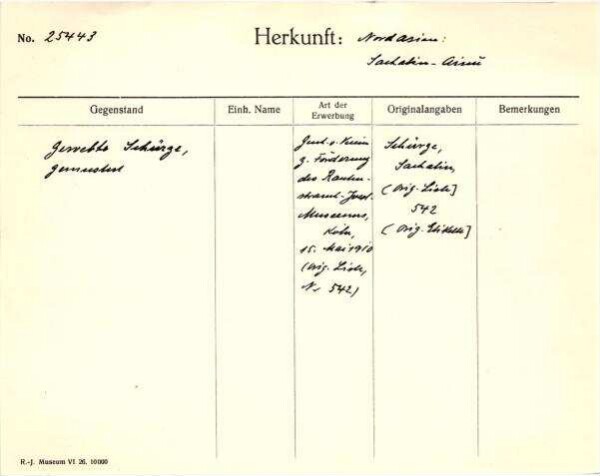 No. 25443
Herkunft: Nordasien:
Sachalin-Ainu
Gegenstand
Einh. Name
Art der
Erwerbung
Originalangaben
Bemerkungen
Gewebte Schürze,
gemustert
z. Förderung
des Rauten-
strauch-Joest-
Museums,
Köln,
15. Mai 1910
(Orig. Liste,
Nr. 542)
Schürze,
Sachalin,
(Orig. Liste]
542
(Orig. Etikette]
R.-J. Museum VI 26. 10000